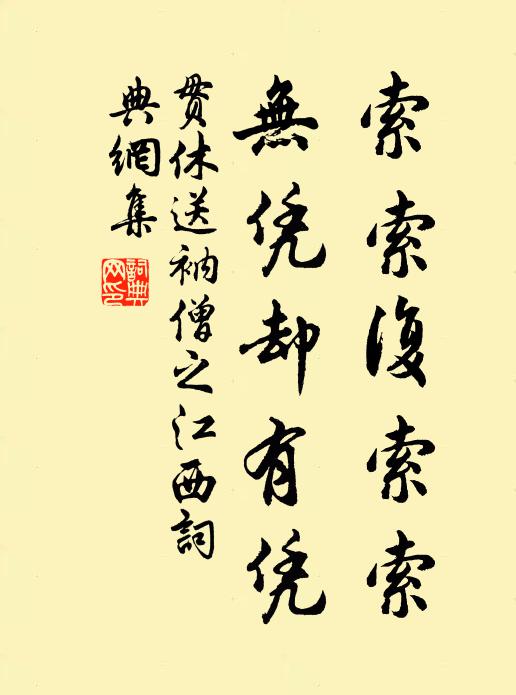 索索復索索
無凭却有凭
貫休送衲僧之江西詞
典網集
詞典
网印